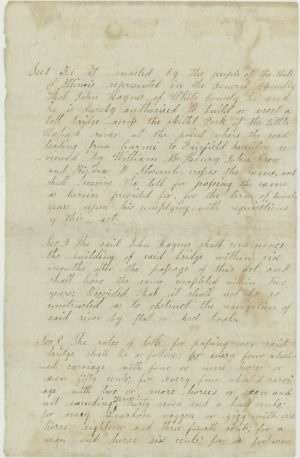 Sec 1 Be it enacted by the people of the State
of Illinois represented in the General Assembly
That John Hagus of White County be and
he is hereby authorised to build or erect a
toll bridge across the skillet Fork of the little
Wabash river at the point where the road
leading from Carmi to Fairfield
viewed by William Mc Henry John Crow
and crosses the same, and
shall receive the toll for passing the same
as herein provided for, for the term of twenty
years upon his complying with requisitions
of this act.
Sec. 2 The said John Hagus shall commence
the building of said bridge within six
months after the passage of this act and
shall have the same completed within two
years; Provided That it shall not be so
constructed as to obstruct the navigation of
said river by flat or keel boats.
Sec. 3 The rates of toll for passing over said
bridge shall be as follows: for every four wheel
ed carriage with four or more horses or
oxen fifty cents; for every four wheeled carri
age with two or more horses or oxen and
not exceeding thirty seven and a half cents;
for every Dearborn waggon or gigg with one
horse eighteen and three fourth cents; for a
man and horse six cents; for a footman